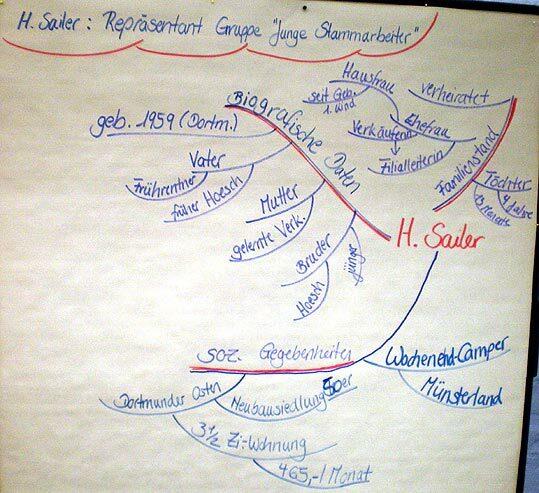 H. Sailer : Repräsentant Gruppe "Junge Stammarbeiter"
Biografische Daten
geb. 1959 (Dortm.)
Vater
Frührentner
früher Hoesch
Mutter
gelernte Verk.
Bruder
jünger
Hoesch
H. Sailer
Familienstand
verheiratet
Ehefrau
Hausfrau
seit Geb.
1. Kind
Verkäuferin
Filialleiterin
Töchter
9 Jahre
13 Monate
soz. Gegebenheiten
Wochenend-Camper
Münsterland
Dortmunder Osten
Neubausiedlung 50er
3 1/2 Zi-Wohnung
465,-/Monat